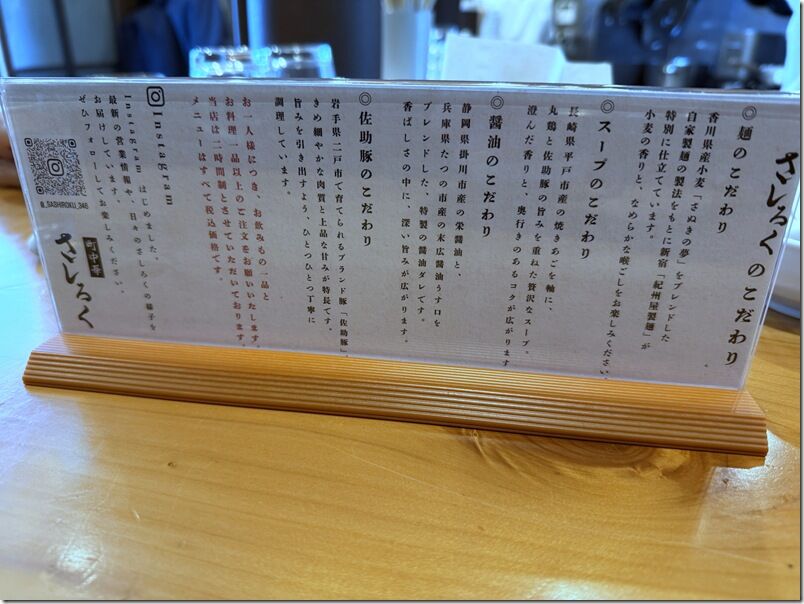 さしろくのこだわり
◎ 麺のこだわり
香川県産小麦「さぬきの夢」をブレンドした
自家製麺の製法をもとに新宿「紀州屋製麺」が
特別に仕立てています。
小麦の香りと、なめらかな喉ごしをお楽しみください。
◎ スープのこだわり
長崎県平戸市産の焼きあごを軸に、
丸鶏と佐助豚の旨みを重ねた贅沢なスープ。
澄んだ香りと、奥行きのあるコクが広がります
◎ 醤油のこだわり
静岡県掛川市産の栄醤油と、
兵庫県たつの市産の末広醤油うす口を
ブレンドした、特製の醤油ダレです。
香ばしさの中に、深い旨みが広がります。
◎ 佐助豚のこだわり
岩手県二戸市で育てられるブランド豚「佐助豚」。
きめ細やかな肉質と上品な甘みが特長です。
旨みを引き出すよう、ひとつひとつ丁寧に
調理しています。
お一人様につき、お飲みもの一品と
お料理一品以上のご注文をお願いいたします。
当店は二時間制とさせていただいております。
メニューはすべて税込価格です。
Instagram
Instagram はじめました。
最新の営業情報や、日々のさしろくの様子を
お届けしています。
ぜひフォローしてお楽しみください。
@_SASHIROKU_346
町中華
さしろく